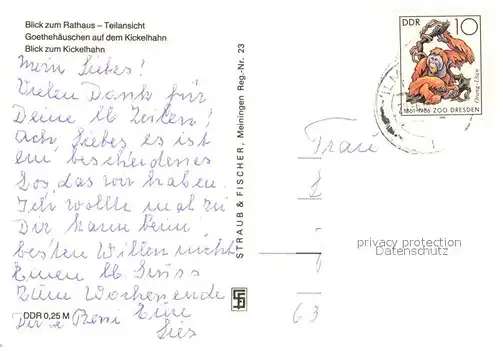 Blick zum Rathaus – Teilansicht
Goethehäuschen auf dem Kickelhahn
Blick zum Kickelhahn
Mein Liebes!
Vielen Dank für
Deine lb Zeilen!
Ach, Liebes es ist
ein bescheidenes
Los, das wir haben.
Ich wollte mal zu
Dir kann beim
besten Willen nicht
Einen lb Gruss
zum Wochenende
Eure
DDR 0,25 M
STRAUB & FISCHER, Meiningen Reg.-Nr. 23
DDR 10
Orang-Utan
1861-1986 ZOO DRESDEN
Frau
63
privacy protection
Datenschutz